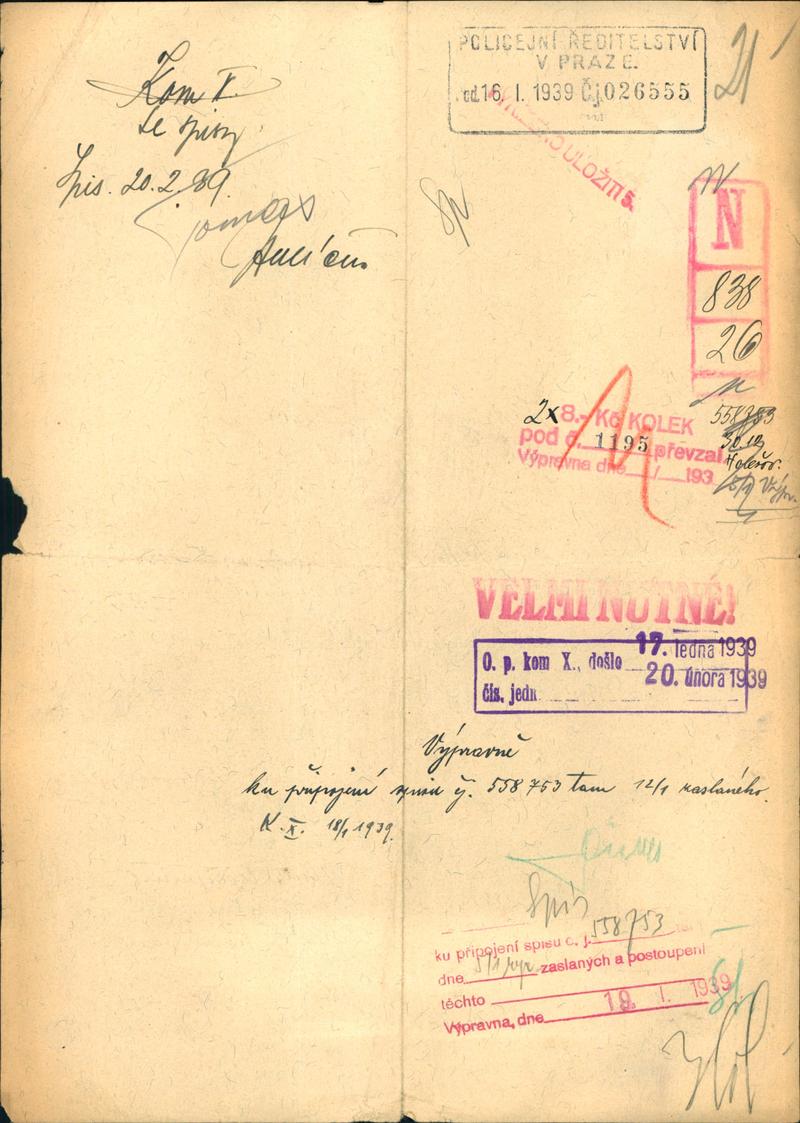 Kom X.
se spisy
Spis. 20.2.39.
POLICEJNÍ ŘEDITELSTVÍ
V PRAZE.
od 16. I. 1939 Č.j. 026555
21
ULOŽITI 5.
N
838
26
2x 8.- Kč KOLEK
pod č. 1195 převzal
Výpravna dne / 193
558753
30.12
VELMI NUTNÉ!
17. ledna 1939
O. p. kom X., došlo
20. února 1939
čís. jedn.
Výpravně
ku připojení spisu čj. 558753 tam 12/1 zaslaného.
K. X. 18/1 1939.
Spis
ku připojení spisu č. j. 558753
dne 5/1 zaslaných a postoupení
těchto
19. I. 1939
Výpravna, dne